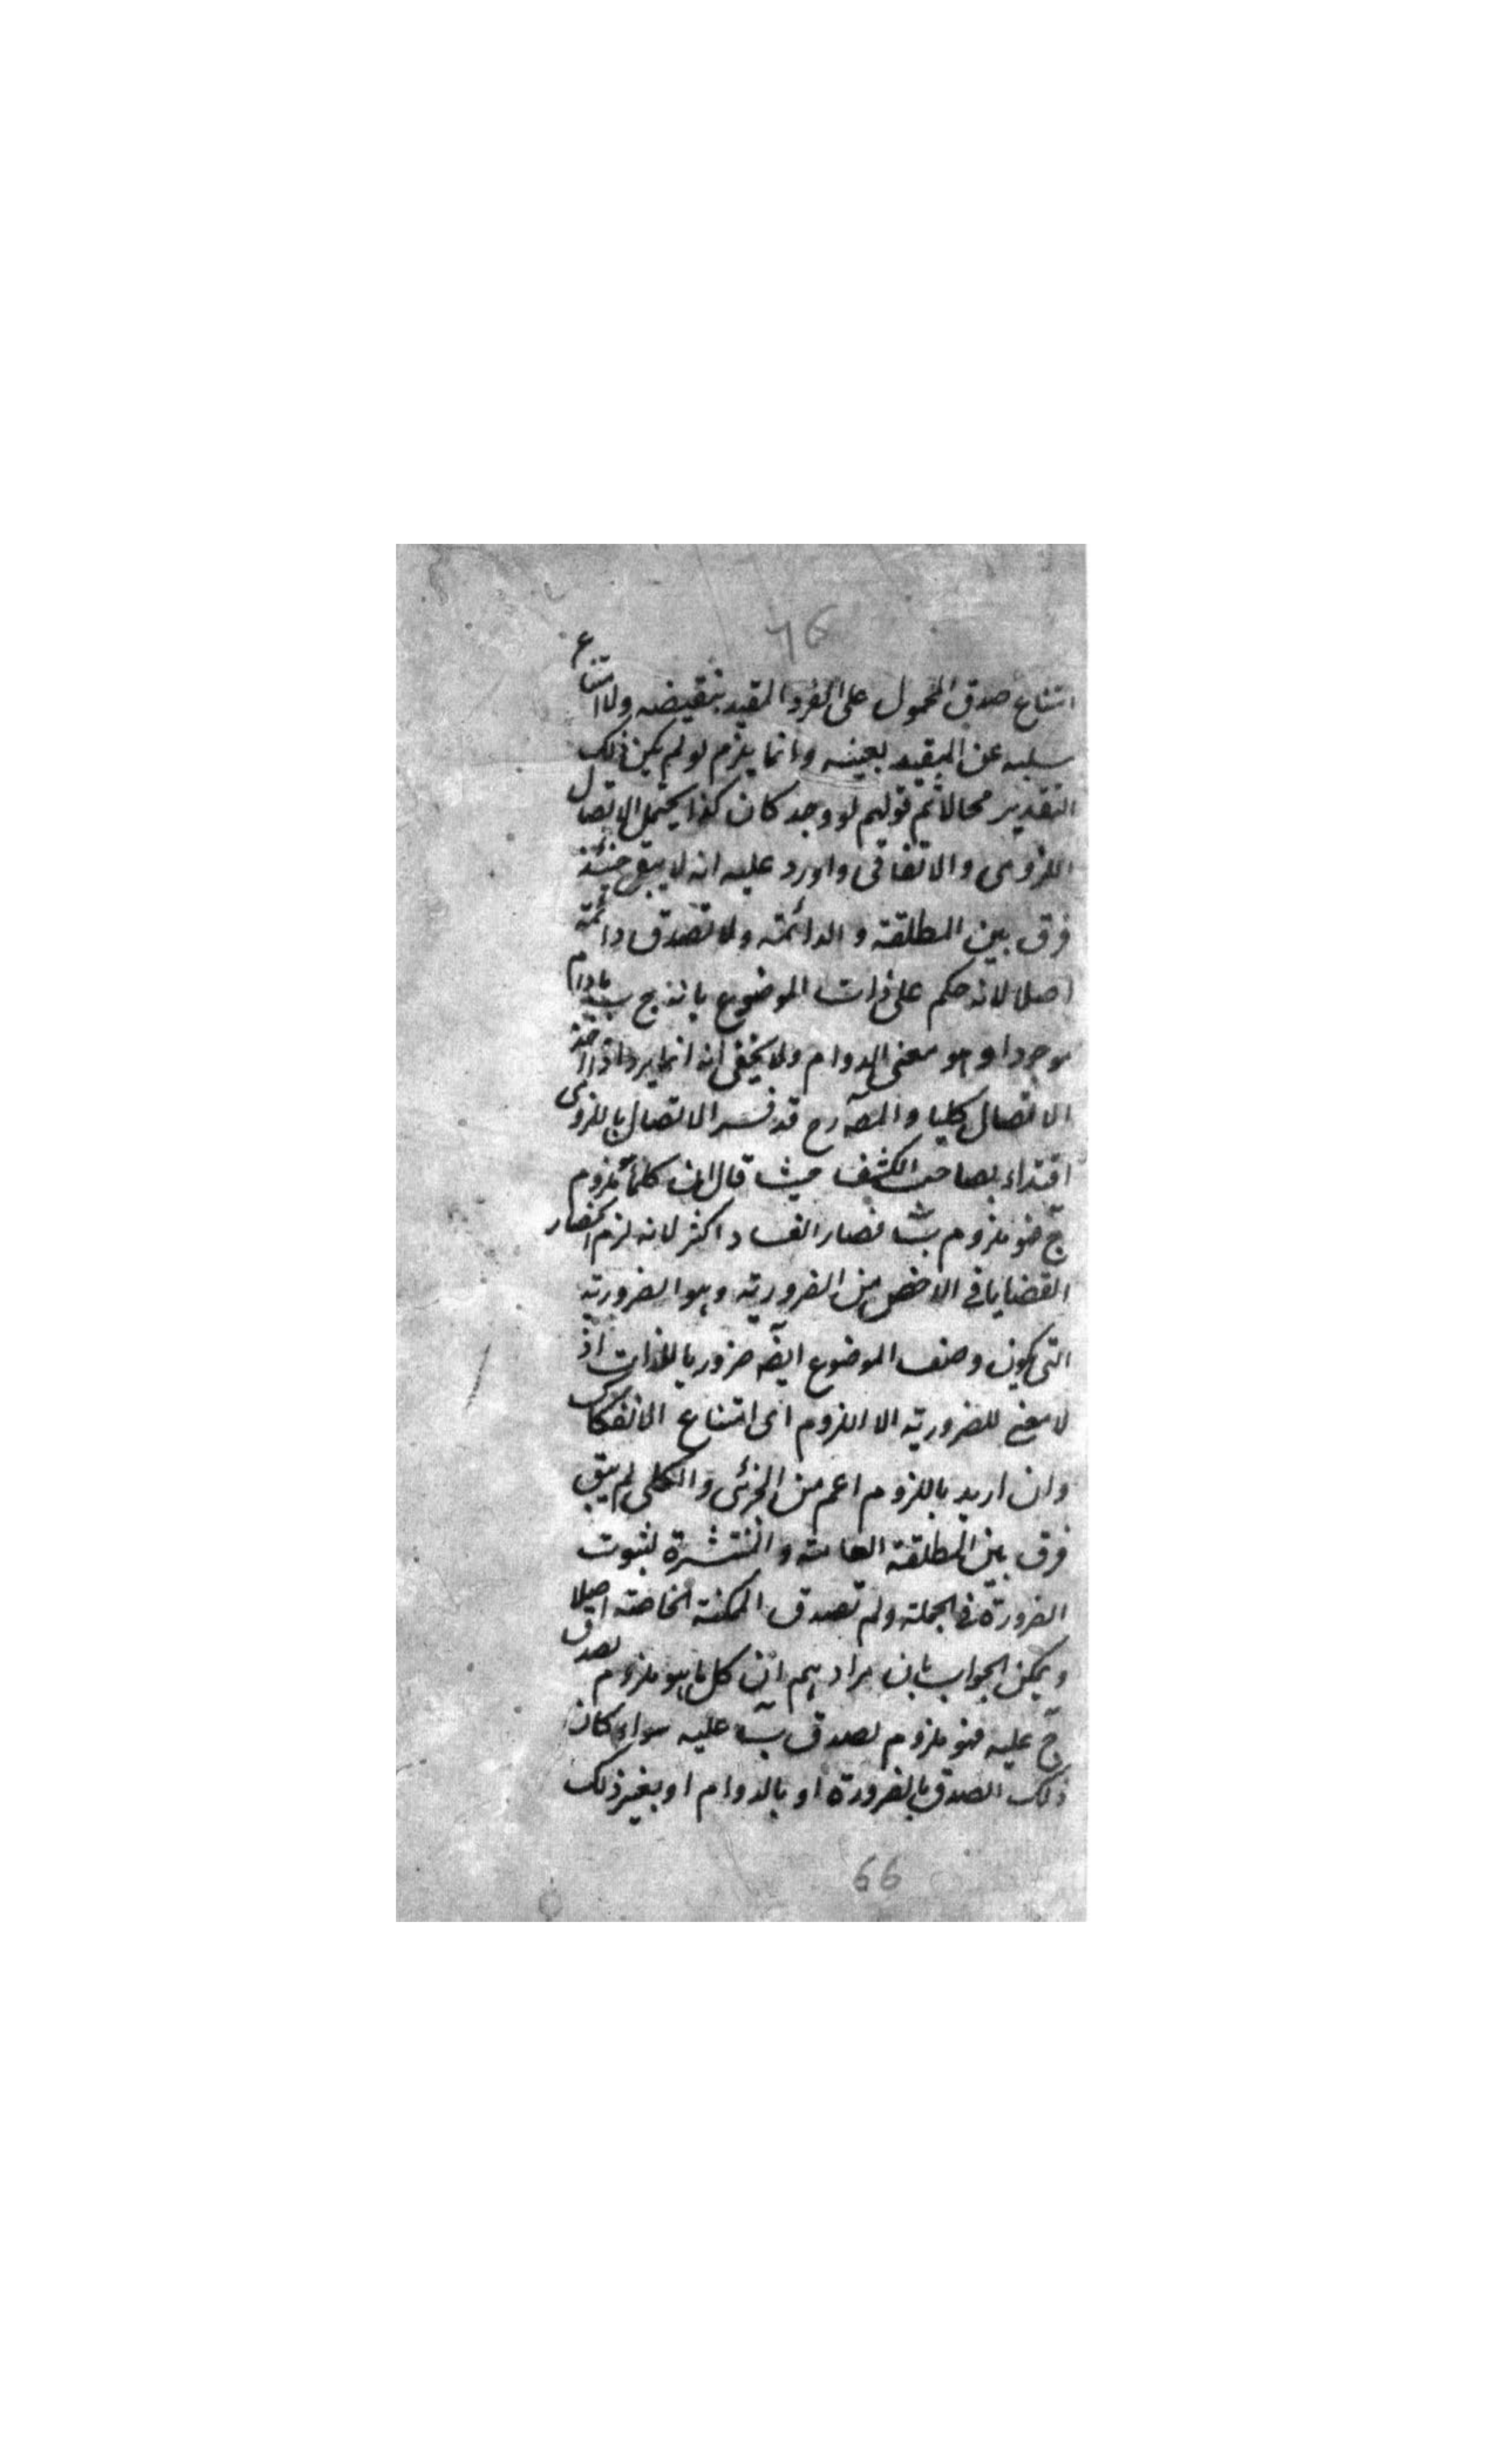 76
امتناع صدق المحمول على الفرد المقيد بنقيضه ولا امتناع
سلبه عن المقيد بعينه وانما يلزم لو لم يكن ذلك
التقدير محالا ثم قولهم لو وجد كان كذا يحتمل الاتصال
اللزومى والاتفاقى واورد عليه انه لا يبقى حينئذ
فرق بين المطلقة والدائمة ولا تصدق دائمة
اصلا لانه حكم على ذات الموضوع بانه ج ب مادام
موجودا وهو معنى الدوام ولا يخفى انه انما يرد اذا اخذ
الاتصال كليا والمصـ رح قد فسر الاتصال باللزومى
اقتداء بصاحب الكشف حيث قال ان كلما ملزوم
ج فهو ملزوم ب فصار الفساد اكثر لانه لزم انحصار
القضايا فى الاخص من الضرورية وهو الضرورية
التى يكون وصف الموضوع ايضـ ضروريا للذات اذ
لا معنى للضرورية الا اللزوم اى امتناع الانفكاك
وان اريد باللزوم اعم من الجزئى والكلى لم يبق
فرق بين المطلقة العامة والمنتشرة لثبوت
الضرورة فى الجملة ولم تصدق الممكنة الخاصة اصلا
ويمكن الجواب بان مرادهم ان كل ما هو ملزوم لصدق
ج عليه فهو ملزوم لصدق ب عليه سواء كان
ذلك الصدق بالضرورة او بالدوام او بغير ذلك
66